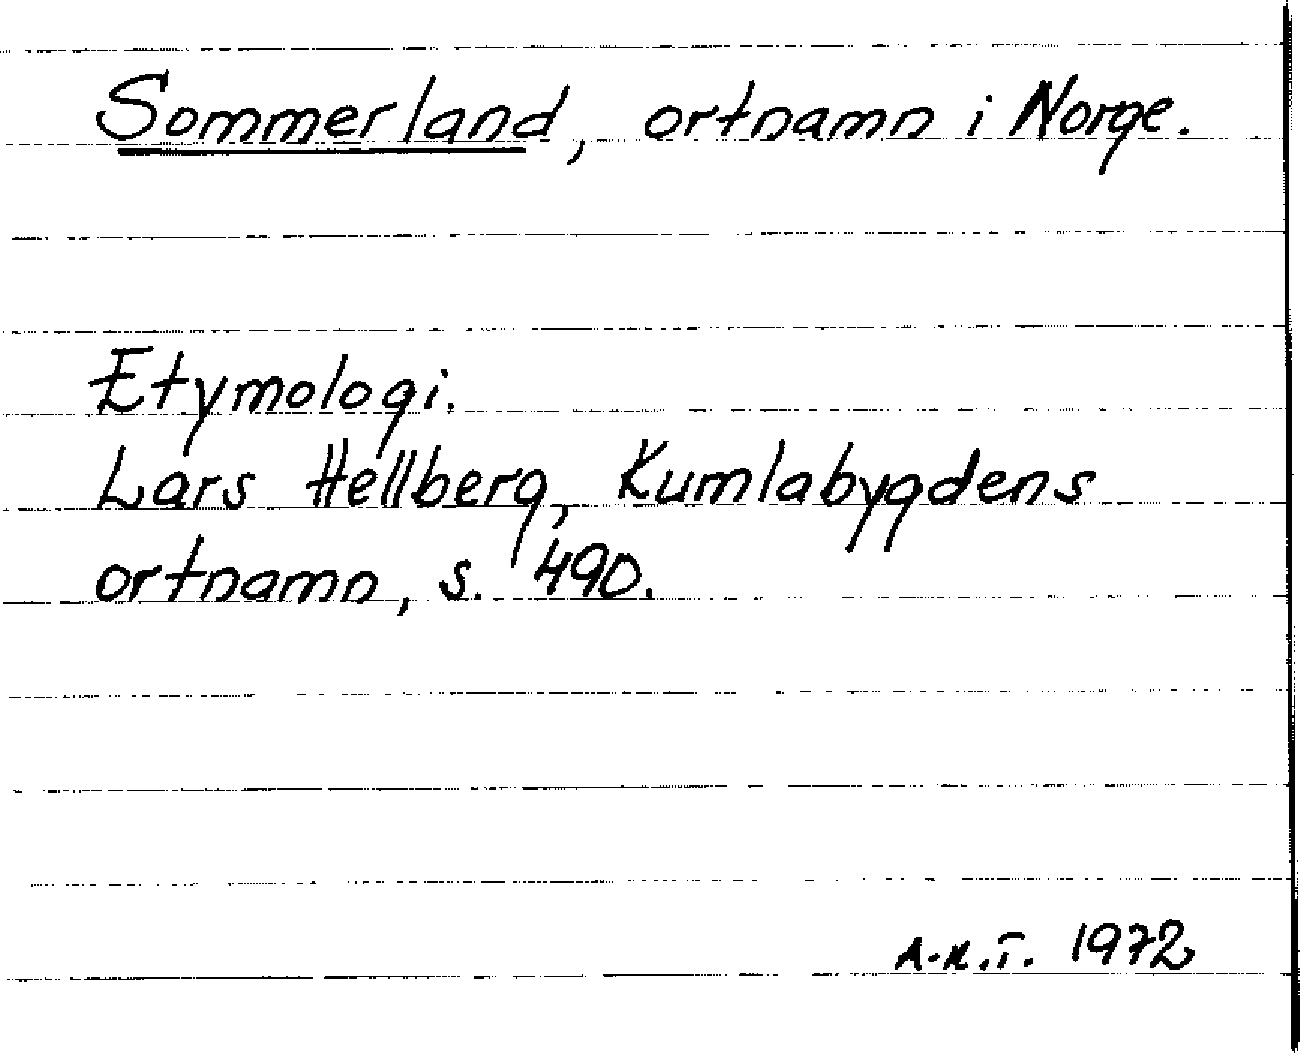 Sommerland, ortnamn i Norge.
Etymologi.
Lars Hellberg, Kumlabygdens
ortnamn, s. 490.
A-K.T. 1972